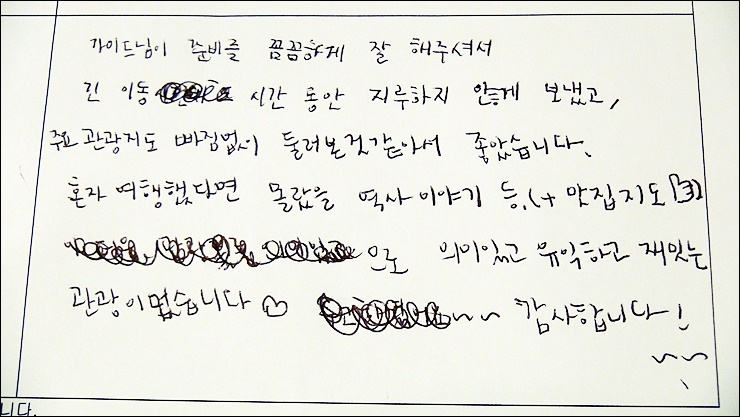 가이드님이 준비를 꼼꼼하게 잘 해주셔서
긴 이동 시간 동안 지루하지 않게 보냈고,
주요 관광지도 빠짐없이 둘러본것같아서 좋았습니다.
혼자 여행했다면 몰랐을 역사이야기 등, (+ 맛집지도
으로 의미있고 유익하고 재밌는
관광이였습니다 ♡ ~~ 감사합니다!
~~
니다.